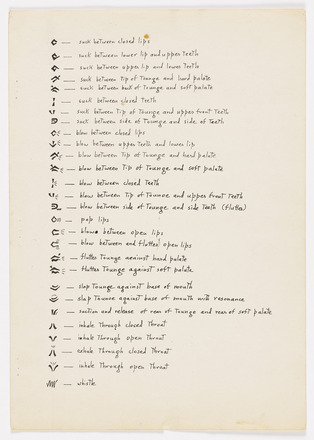 — suck between closed lips
— suck between lower lip and upper teeth
— suck between upper lip and lower teeth
— suck between tip of tounge and hard palate
— suck between back of tounge and soft palate
— suck between closed teeth
— suck between tip of tounge and upper front teeth
— suck between side of tounge and side of teeth
— blow between closed lips
— blow between upper teeth and lower lip
— blow between tip of tounge and hard palate
— blow between tip of tounge and soft palate
— blow between closed teeth
— blow between tip of tounge and upper front teeth
— blow between side of tounge and side teeth (flutter)
— pop lips
— blow between open lips
— blow between and flutter open lips
— flutter tounge against hard palate
— flutter tounge against soft palate
— slap tounge against base of mouth
— slap tounge against base of mouth with resonance
— suction and release of rear of tounge and rear of soft palate
— inhale through closed throat
— inhale through open throat
— exhale through closed throat
— inhale through open throat
— whistle